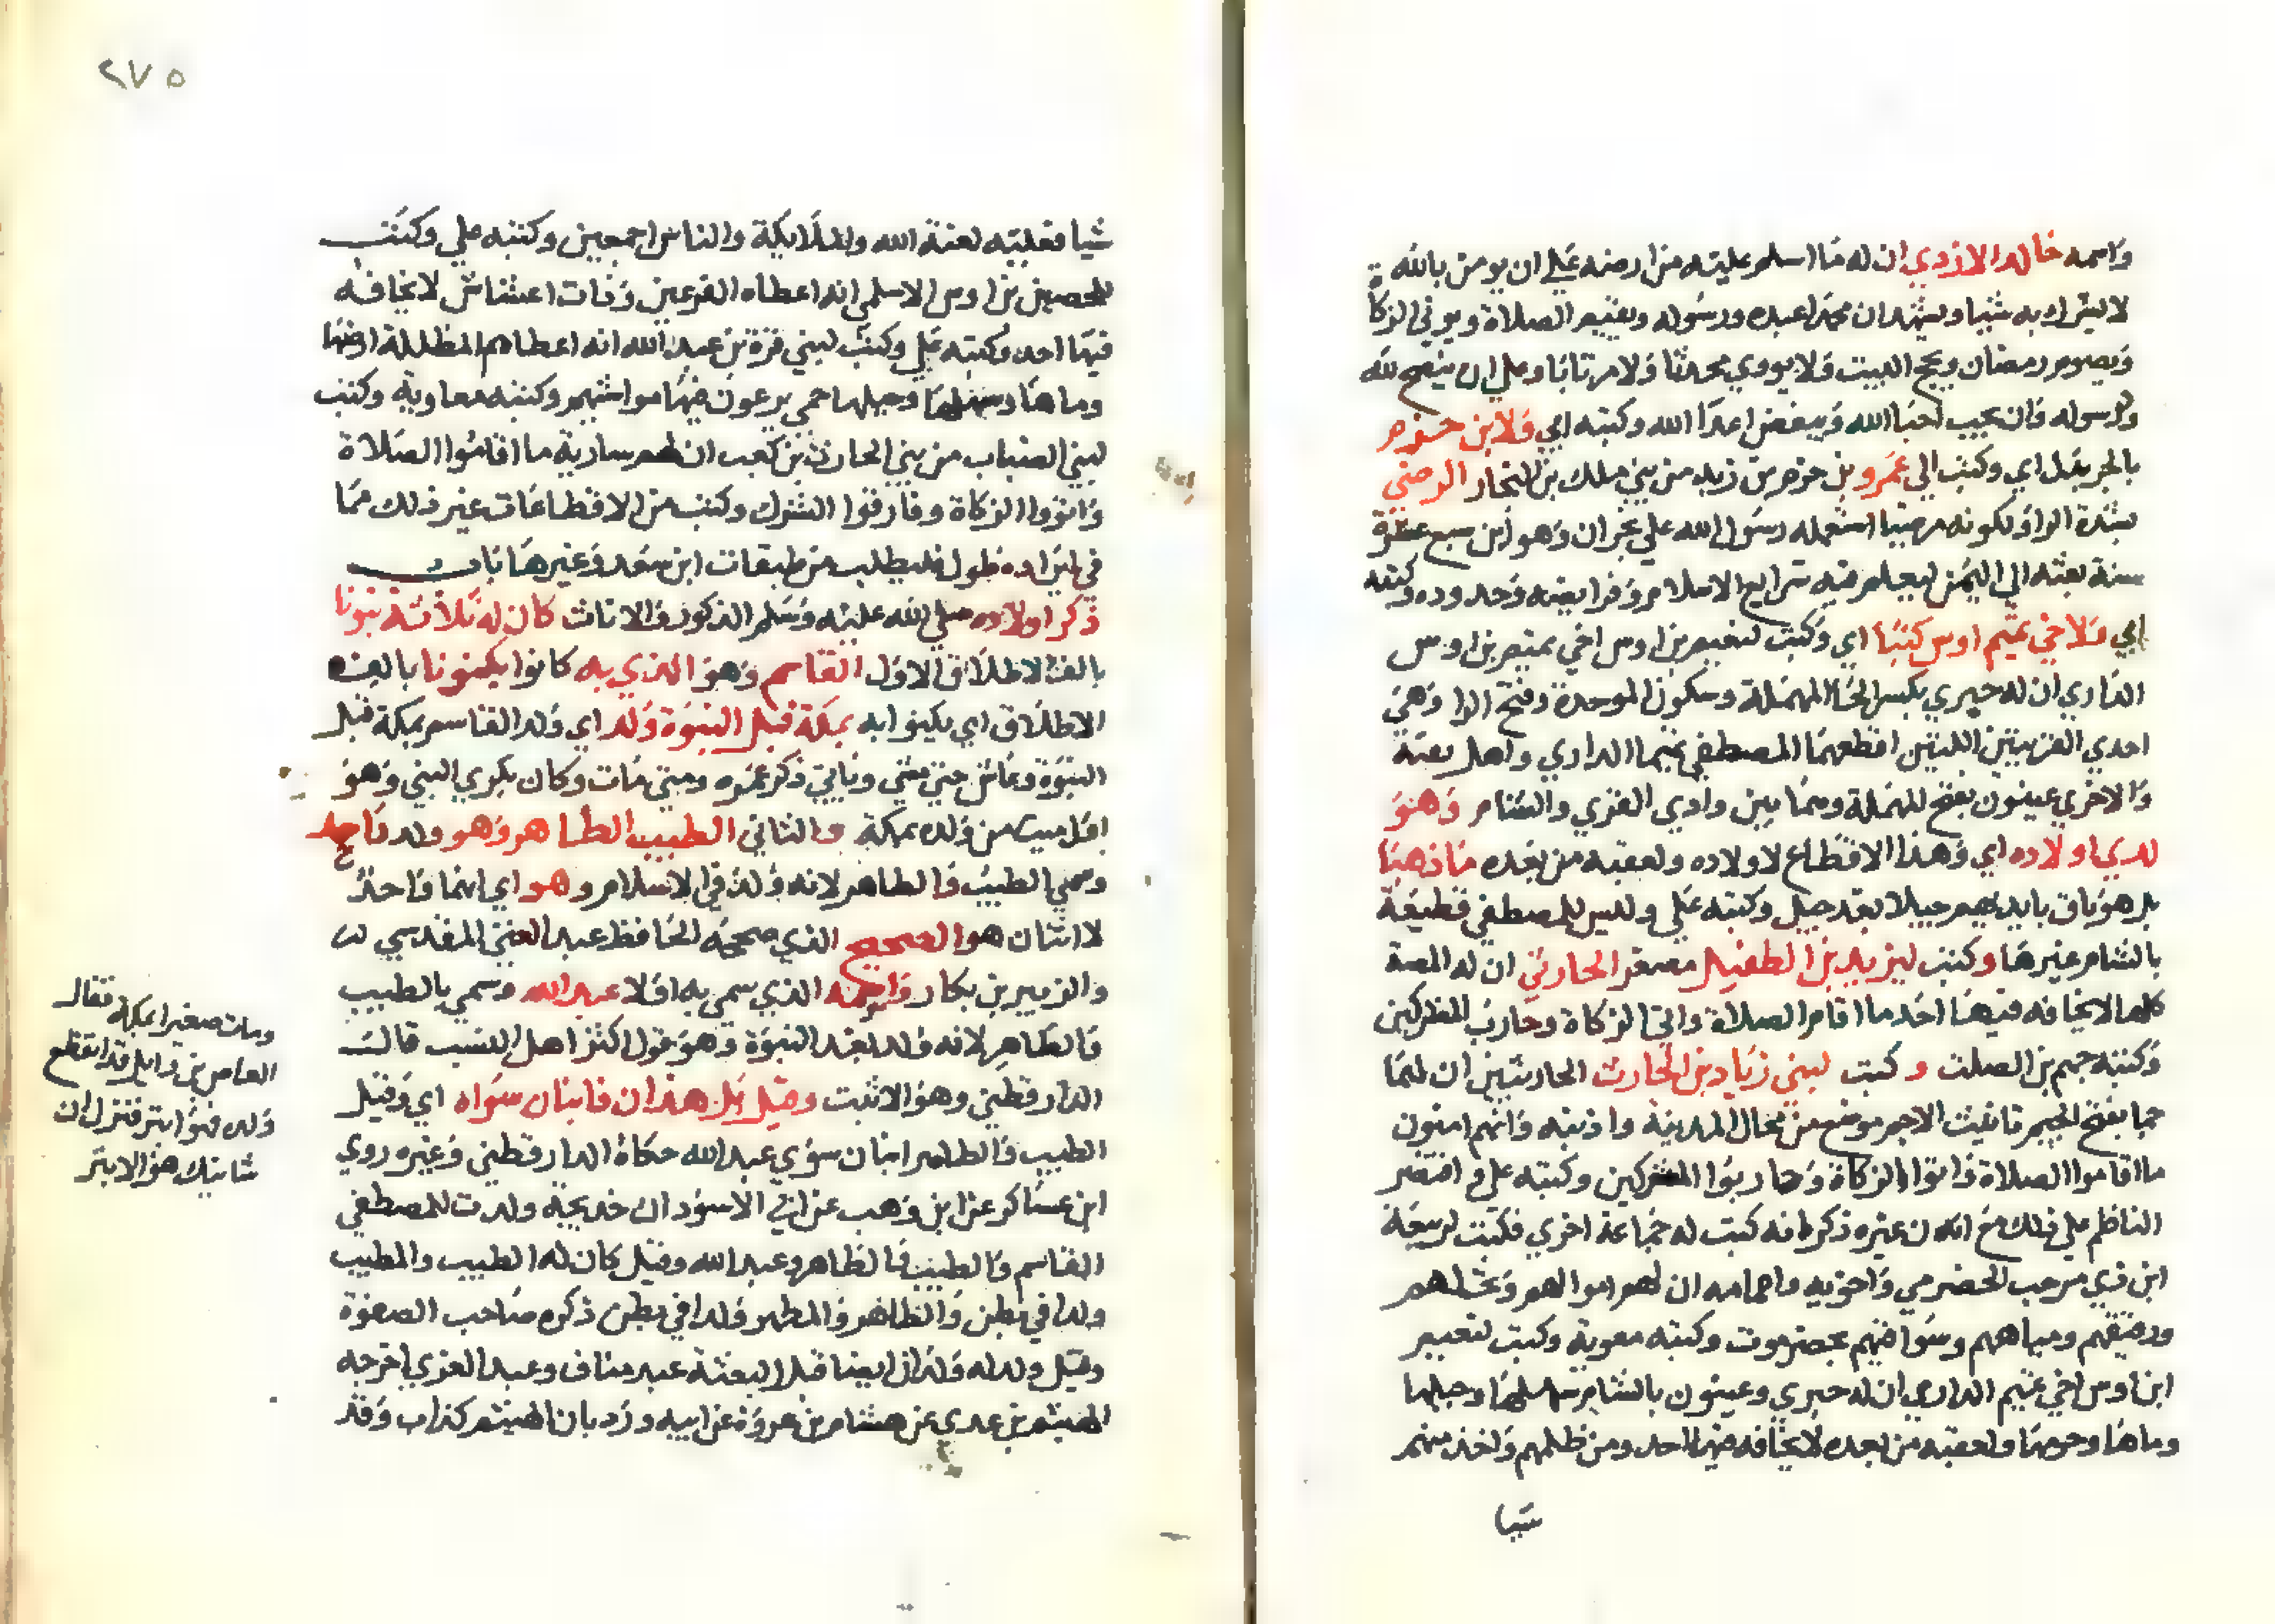 واسمه خالد الازدي ان له ما اسلم عليه من ارضه علي ان يومن بالله
لا يشرك به شيا ويشهد ان محمدا عبده ورسوله ويقيم الصلاة ويوتي الزكاة
ويصوم رمضان ويحج البيت ولا يووي محدثا ولا مرتابا وعلي ان ينصح لله
ولرسوله وان يحب احبا الله ويبغض اعدا الله وكتبه ابي ولابن حزم
بالجر بدل اي وكتب الي عمرو بن حزم بن زيد من بني ملك بن النجار الرضي
بشدة الرا ولكونه مرضيا استعمله رسول الله علي نجران وهو ابن سبع عشرة
سنة بعثه الي اليمن ليعلم فيه شرايع الاسلام وفرايضه وحدوده وكتبه
ابي ولاخي تميم اوس كتبا اي وكتب لنعيم بن اوس اخي تميم بن اوس
الداري ان له حبري بكسر الحا المهملة وسكون الموحدة وفتح الرا وهي
احدي القريتين اللتين اقطعهما المصطفي تميما الداري واهل بيته
والاخري عينون بفتح المهملة وهما بين وادي القري والشام وهو
لدي اولاده اي وهذا الاقطاع لاولاده ولعقبه من بعده ما ذهبا
بل هو باق بايديهم جيلا بعد جيل وكتبه علي وليس للمصطفي قطيعة
بالشام غيرها وكتب ليزيد بن الطفيل مصغر الحارثي ان له المضة
كلها لا يخافه فيها احد ما اقام الصلاة واتي الزكاة وحارب المشركين
وكتبه جهم بن الصلت وكتب لبني زياد بن الحارث الحارثيين ان لهم
جما بفتح الجيم تانيث الاجم موضع من محال المدينة واذنبه وانهم امنون
ما اقاموا الصلاة واتوا الزكاة وحاربوا المشركين وكتبه علي واقتصر
الناظم علي ذلك مع انه ن غيره ذكر انه كتب له جماعة اخري فكتب لربيعة
ابن ذي مرحب الحضرمي واخوته واعمامه ان لهم اموالهم ونخلهم
ورقيقهم ومياههم وسواقيهم بحضرموت وكتبه معوية وكتب لنعيم
ابن اوس اخي تميم الداري ان له حبري وعينون بالشام سهلها وجبلها
وماها وحرثها ولعقبه من بعده لا يخافه فيها احد ومن ظلمهم واخذ منهم
شيا
٢٧٥
شيا فعليه لعنة الله والملايكة والناس اجمعين وكتبه علي وكتب
للحصين بن اوس الاسلمي انه اعطاه الفرغين وذات اعشاش لا يخافه
فيها احد وكتبه علي وكتب لبني قرة بن عبد الله انه اعطاهم المظللة ارضها
وماها وسهلها وجبلها حمي يرعون فيها مواشيهم وكتبه معاوية وكتب
لبني الضباب من بني الحارث بن كعب ان لهم سارية ما اقاموا الصلاة
واتوا الزكاة وفارقوا الشرك وكتب من الاقطاعات غير ذلك مما
في ايراده طول فليطلب من طبقات ابن سعد وغيرها باب
ذكر اولاده صلي الله عليه وسلم الذكور والاناث كان له ثلاثة بنونا
بالف الاطلاق الاول القاسم وهو الذي به كانوا يكنونا بالف
الاطلاق اي يكنوا به بمكة قبل النبوة ولد اي ولد القاسم بمكة قبل
النبوة وعاش حتي مشي وياتي ذكر عمره ومتي مات وكان بكري البني وهو
اول ميت من ولده بمكة والثاني الطيب الطاهر وهو ولد واحد
وسمي الطيب والطاهر لانه ولد في الاسلام وهو اي انما واحد
لا اثنان هو الصحيح الذي صححه الحافظ عبد الغني المقدسي
والزبير بن بكار واسمه الذي سمي به اولا عبد الله وسمي بالطيب
والطاهر لانه ولد بعد النبوة وهو قول اكثر اهل النسب قال
الدارقطني وهو الاثبت وقيل بل هذان فابنان سواه اي وقيل
الطيب والطاهر ابنان سوي عبد الله حكاه الدارقطني وغيره روي
ابن عساكر عن ابن وهب عن ابي الاسود ان خديجة ولدت للمصطفي
القاسم والطيب والطاهر وعبد الله وقيل كان له الطيب والمطيب
ولدا في بطن والطاهر والمطهر ولدا في بطن ذكره صاحب الصفوة
وقيل ولد له ولدان ايضا قبل البعثة عبد مناف وعبد العزي اخرجه
الهيثم بن عدي عن هشام بن عروة عن ابيه ورد بان الهيثم كذاب وقد
ومات صغيرا بمكة فقال
العاص بن وايل قد انقطع
ولده فهو ابتر فنزل ان
شانيك هو الابتر